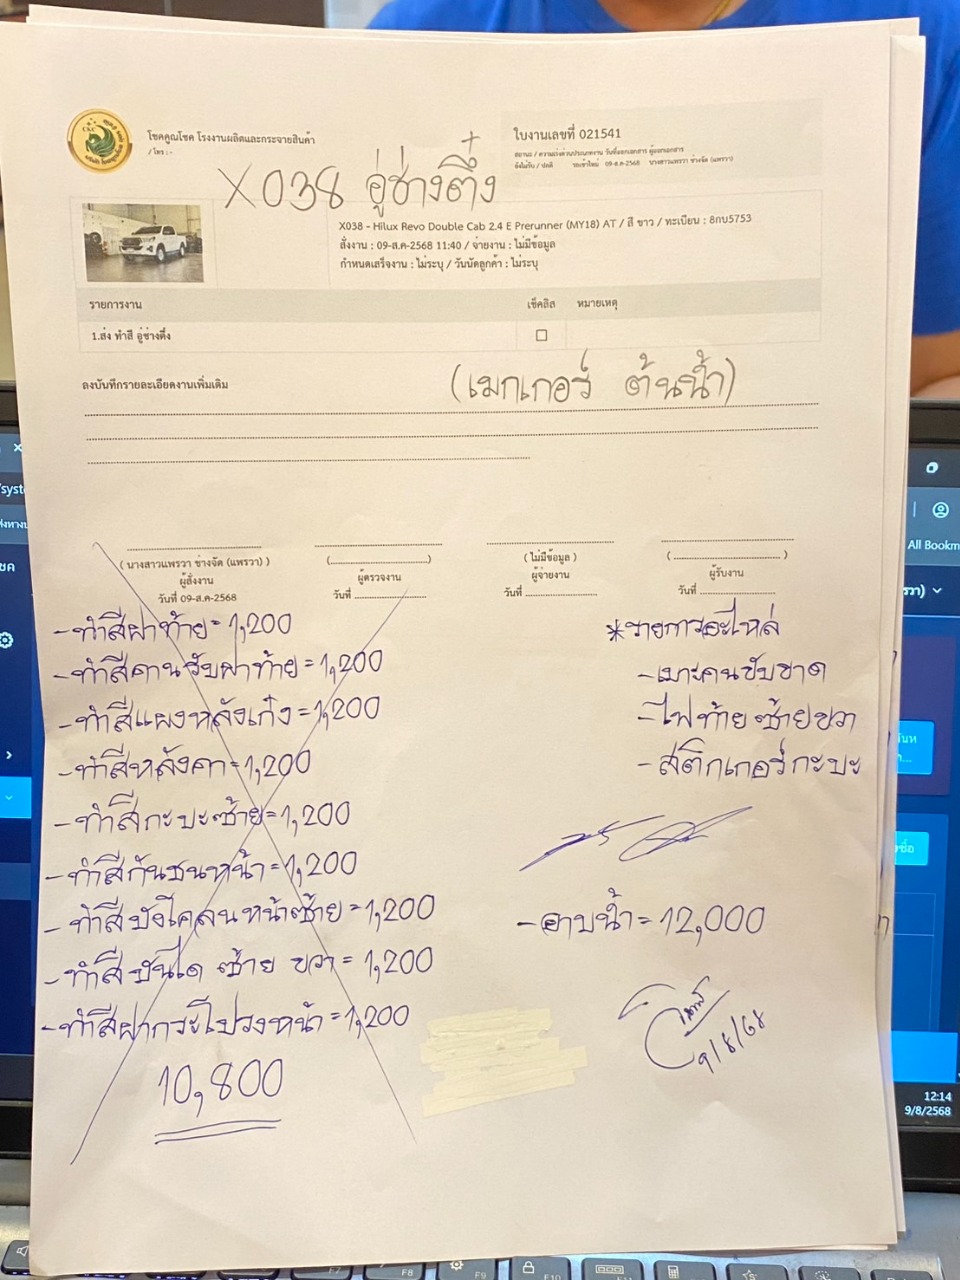 โชคคูณโชค โรงงานผลิตและกระจายสินค้า
/ โทร : -
ใบงานเลขที่ 021541
X038 อู่ช่างติ่ง
X038 - Hilux Revo Double Cab 2.4 E Prerunner (MY18) AT / สี ขาว / ทะเบียน : 8กบ5753
สั่งงาน : 09-ส.ค-2568 11:40 / จ่ายงาน : ไม่มีข้อมูล
กำหนดเสร็จงาน : ไม่ระบุ / วันนัดลูกค้า : ไม่ระบุ
รายการงาน เช็คลิส หมายเหตุ
1.ส่ง ทำสี อู่ช่างติ่ง
ลงบันทึกรายละเอียดงานเพิ่มเติม
(เมกเกอร์ ต้นน้ำ)
( นางสาวแพรวา ช่างจัด (แพรวา) ) (..............................) ( ไม่มีข้อมูล ) ( .................................. )
ผู้สั่งงาน ผู้ตรวจงาน ผู้จ่ายงาน ผู้รับงาน
วันที่ 09-ส.ค-2568 วันที่ ...................... วันที่ ...................... วันที่ ......................
- ทำสีฝาท้าย = 1,200
- ทำสีคานรับฝาท้าย = 1,200
- ทำสีแผงหลังเก๋ง = 1,200
- ทำสีหลังคา = 1,200
- ทำสีกะบะซ้าย = 1,200
- ทำสีกันชนหน้า = 1,200
- ทำสีบังโคลนหน้าซ้าย = 1,200
- ทำสีบันได ซ้าย ขวา = 1,200
- ทำสีฝากระโปรงหน้า = 1,200
10,800
*รายการอะไหล่
- เบาะคนขับขาด
- ไฟท้ายซ้ายขวา
- สติกเกอร์กะบะ
- อาบน้ำ = 12,000
9/8/68
All Bookm
12:14
9/8/2568